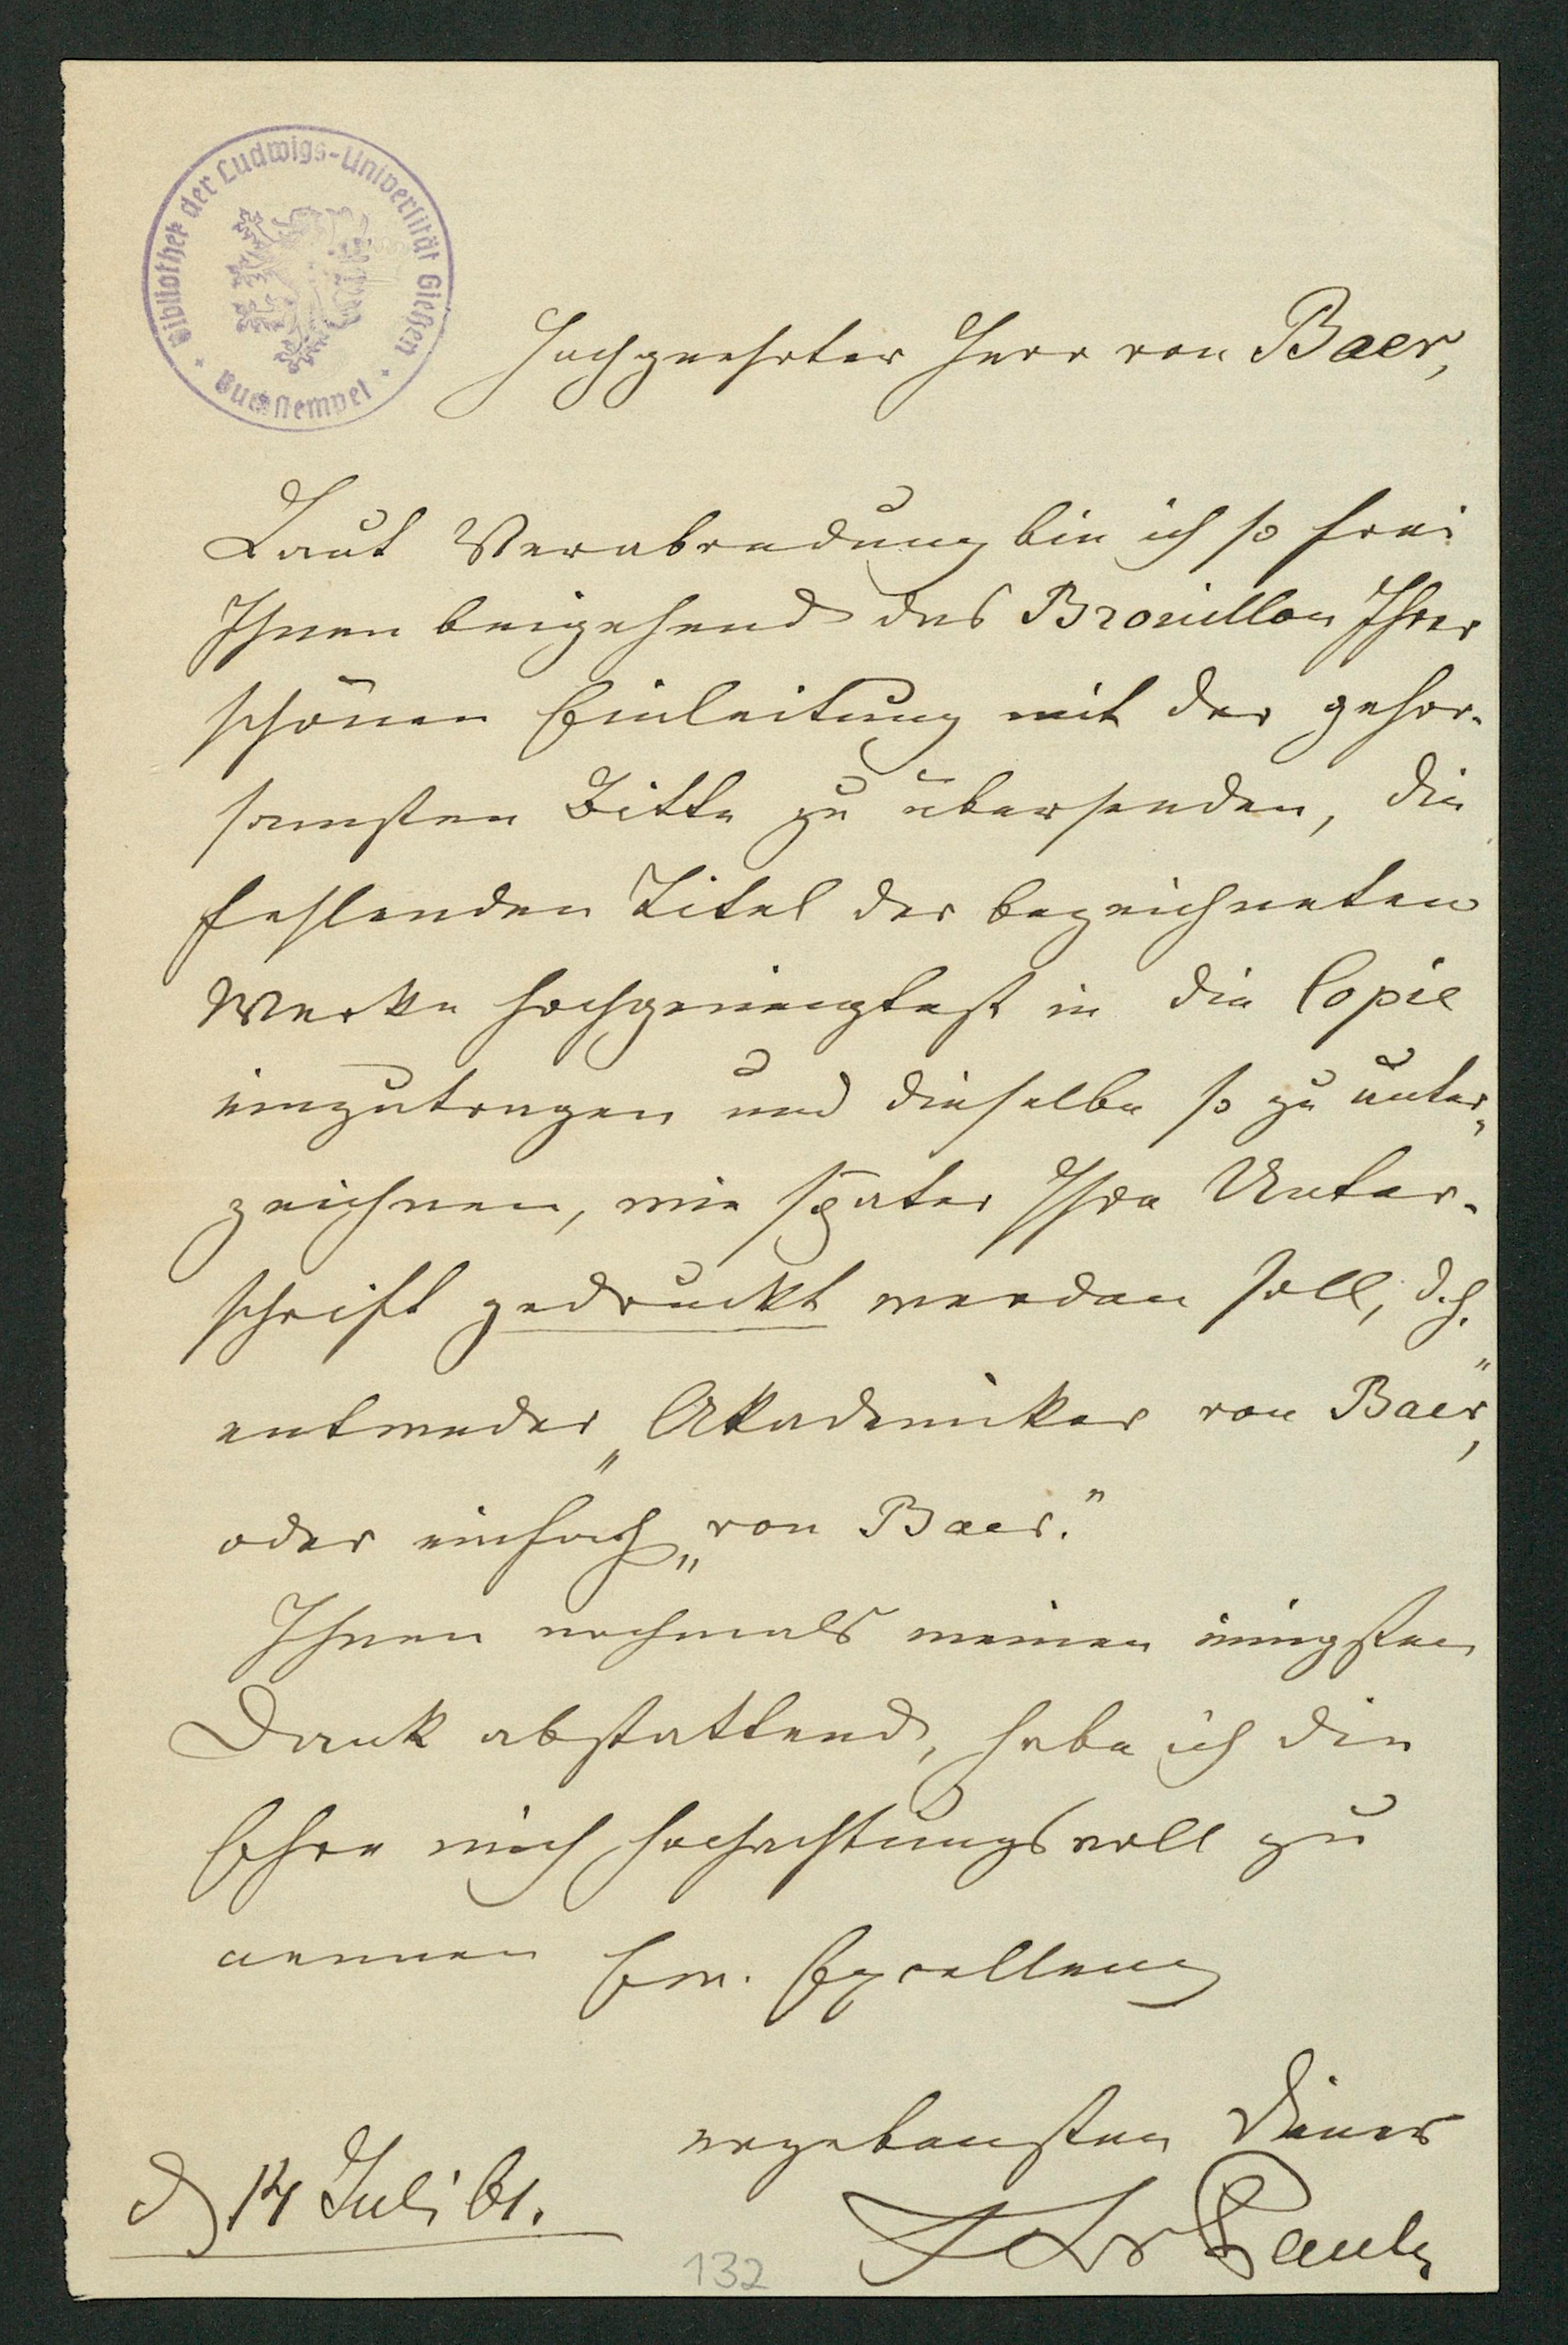 Bibliothek der Ludwigs-Universität Gießen
Buchstempel
Hochgeehrter Herr von Baer,
Laut Verabredung bin ich so frei
Ihnen beigehend das Brouillon Ihrer
schönen Einleitung mit der gehor-
samsten Bitte zu übersenden, die
fehlenden Titel der bezeichneten
Werke hochgeneigtest in die Copie
einzutragen und dieselbe so zu unter-
zeichnen, wie später Ihre Unter-
schrift gedruckt werden soll, d.h.
entweder „Akademiker von Baer",
oder einfach „von Baer."
Ihnen nochmals meinen innigsten
Dank abstattend, habe ich die
Ehre mich hochachtungsvoll zu
nennen Ew. Excellenz
ergebensten Diener
d 14 Juli 61.
Pauly
132